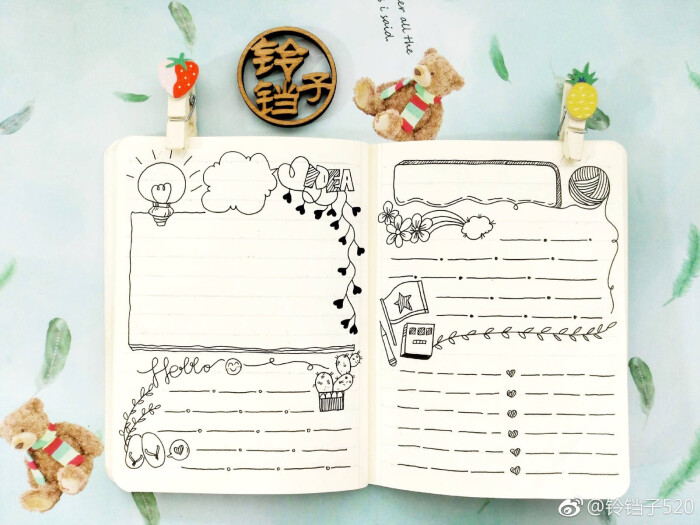 er all the
s i said.
铃
铛子
IDEA
Hello
@铃铛子520